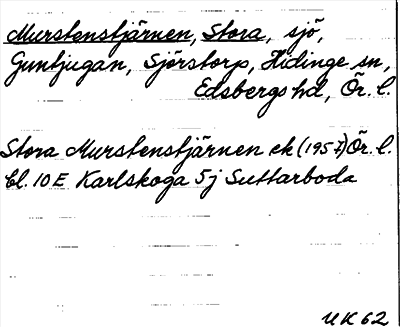 Murstenstjärnen, Stora, sjö,
Guntjugan, Sjörstorp, Hidinge sn,
Edsbergs hd, Ör. l.
Stora Murstenstjärnen ek (1957) Ör. l.
bl. 10 E Karlskoga 5j Suttarboda
UK 62